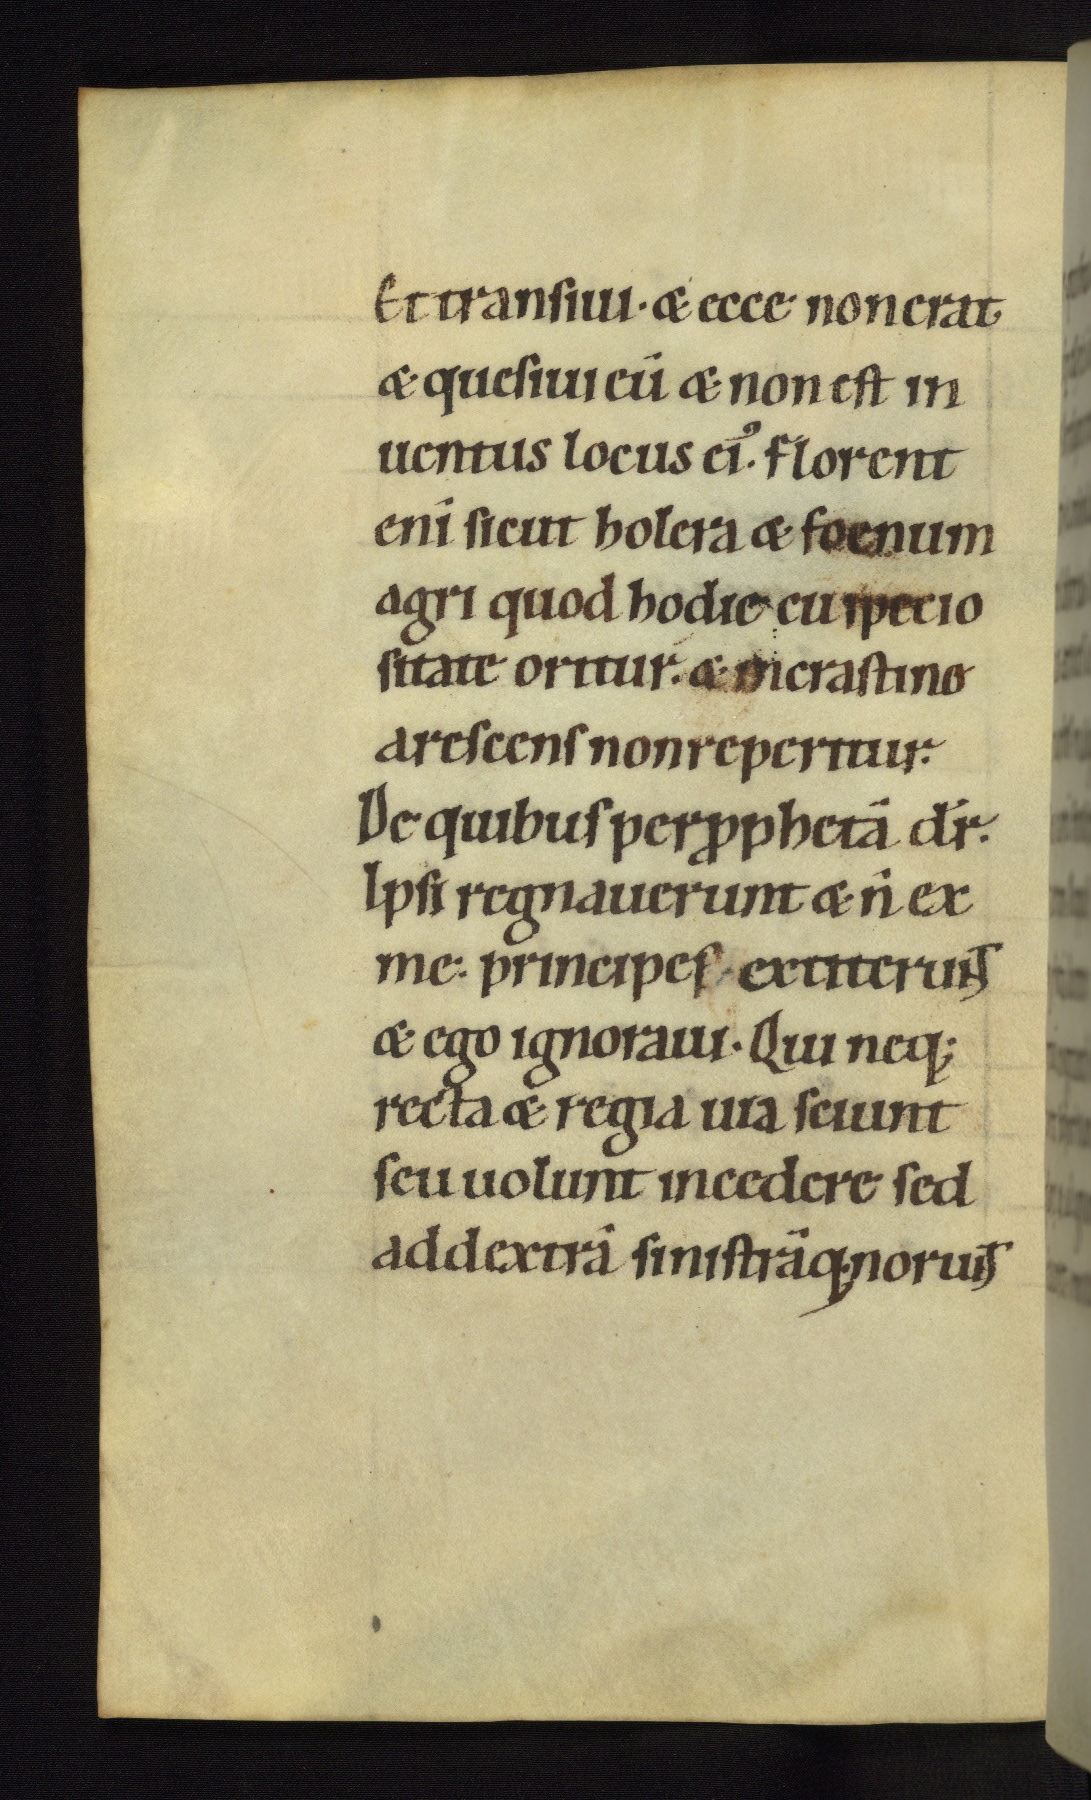 Et transiui · & ecce non erat
& quesiui eū & non est in
uentus locus ei᷒. Florent
enī sicut holera & foenum
agri quod hodie cū specio
sitate oritur. & in crastino
arescens non reperitur.
De quibus per ꝓphetā dr̄.
Ipsi regnauerunt & n̄ ex
me. principes extiterunt
& ego ignoraui. Qui neq;
recta & regia uia sciunt
seu uolunt incedere sed
ad dextrā sinistrāq; norunt